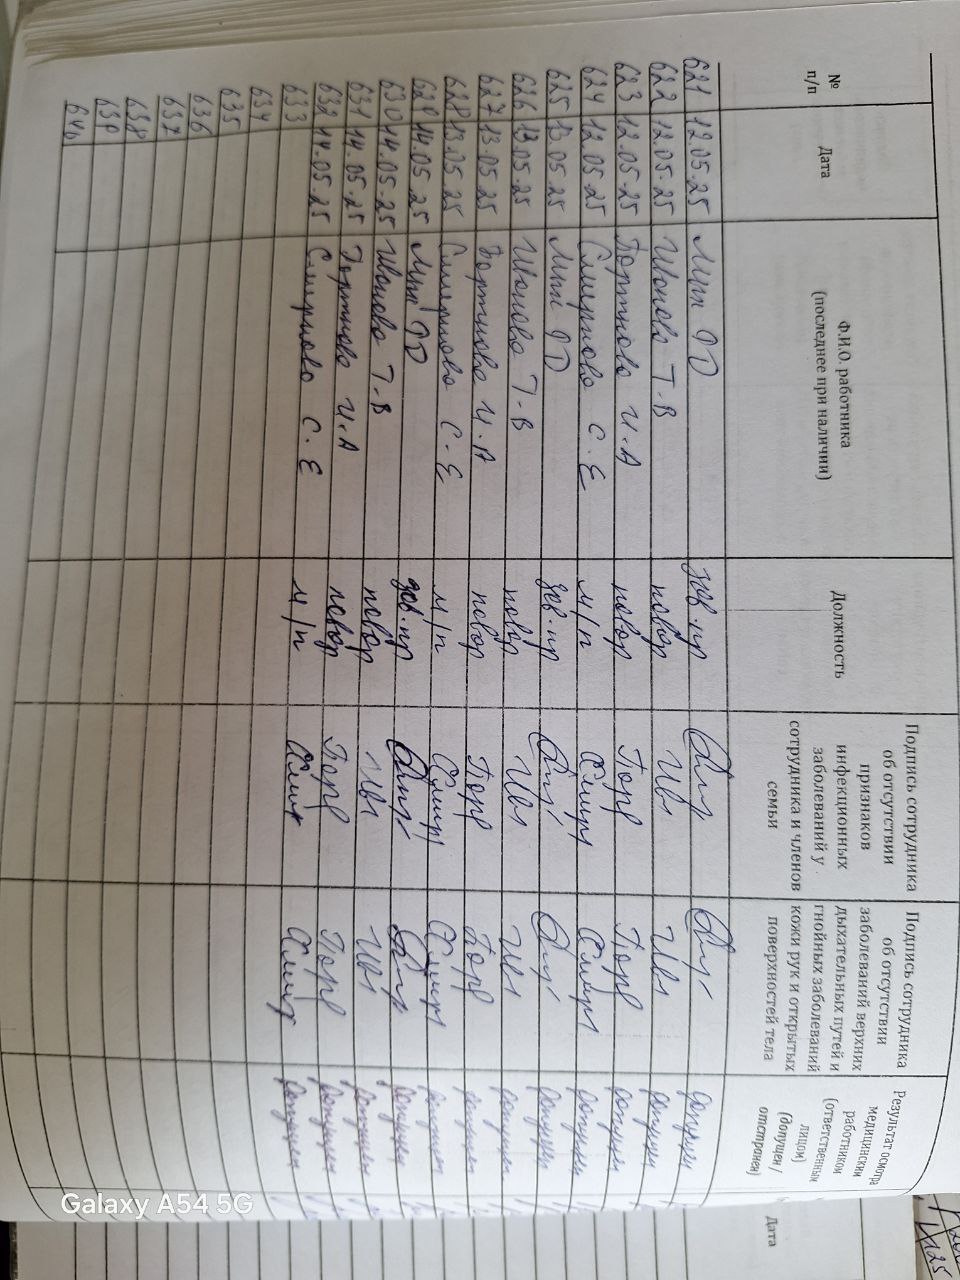 № п/п
Дата
Ф.И.О. работника
(последнее при наличии)
Должность
Подпись сотрудника
об отсутствии
признаков
инфекционных
заболеваний у
сотрудника и членов
семьи
Подпись сотрудника
об отсутствии
заболеваний верхних
дыхательных путей и
гнойных заболеваний
кожи рук и открытых
поверхностей тела
Результат осмотра
медицинским
работником
(ответственным
лицом)
(допущен /
отстранен)
621 12.05.25 зав.пр допущен
622 12.05.25 Иванова Т.В повар Ив допущен
623 12.05.25 Портнова И.А повар Порв Порв допущен
624 12.05.25 Смирнова С.Е м/п Смир Смир допущен
625 13.05.25 зав.пр допущен
626 13.05.25 Иванова Т.В повар Ив Ив допущен
627 13.05.25 Портнова И.А повар Порв Порв допущен
628 13.05.25 Смирнова С.Е м/п Смир Смир допущен
629 14.05.25 зав.пр допущен
630 14.05.25 Иванова Т.В повар Ив Ив допущен
631 14.05.25 Портнова И.А повар Порв Порв допущен
632 14.05.25 Смирнова С.Е м/п Смир Смир допущен
633
634
635
636
637
638
639
640
Дата
Galaxy A54 5G